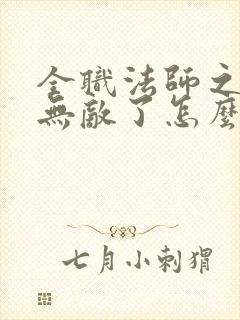 全職法師之
無敵了怎麼
七月小刺猬